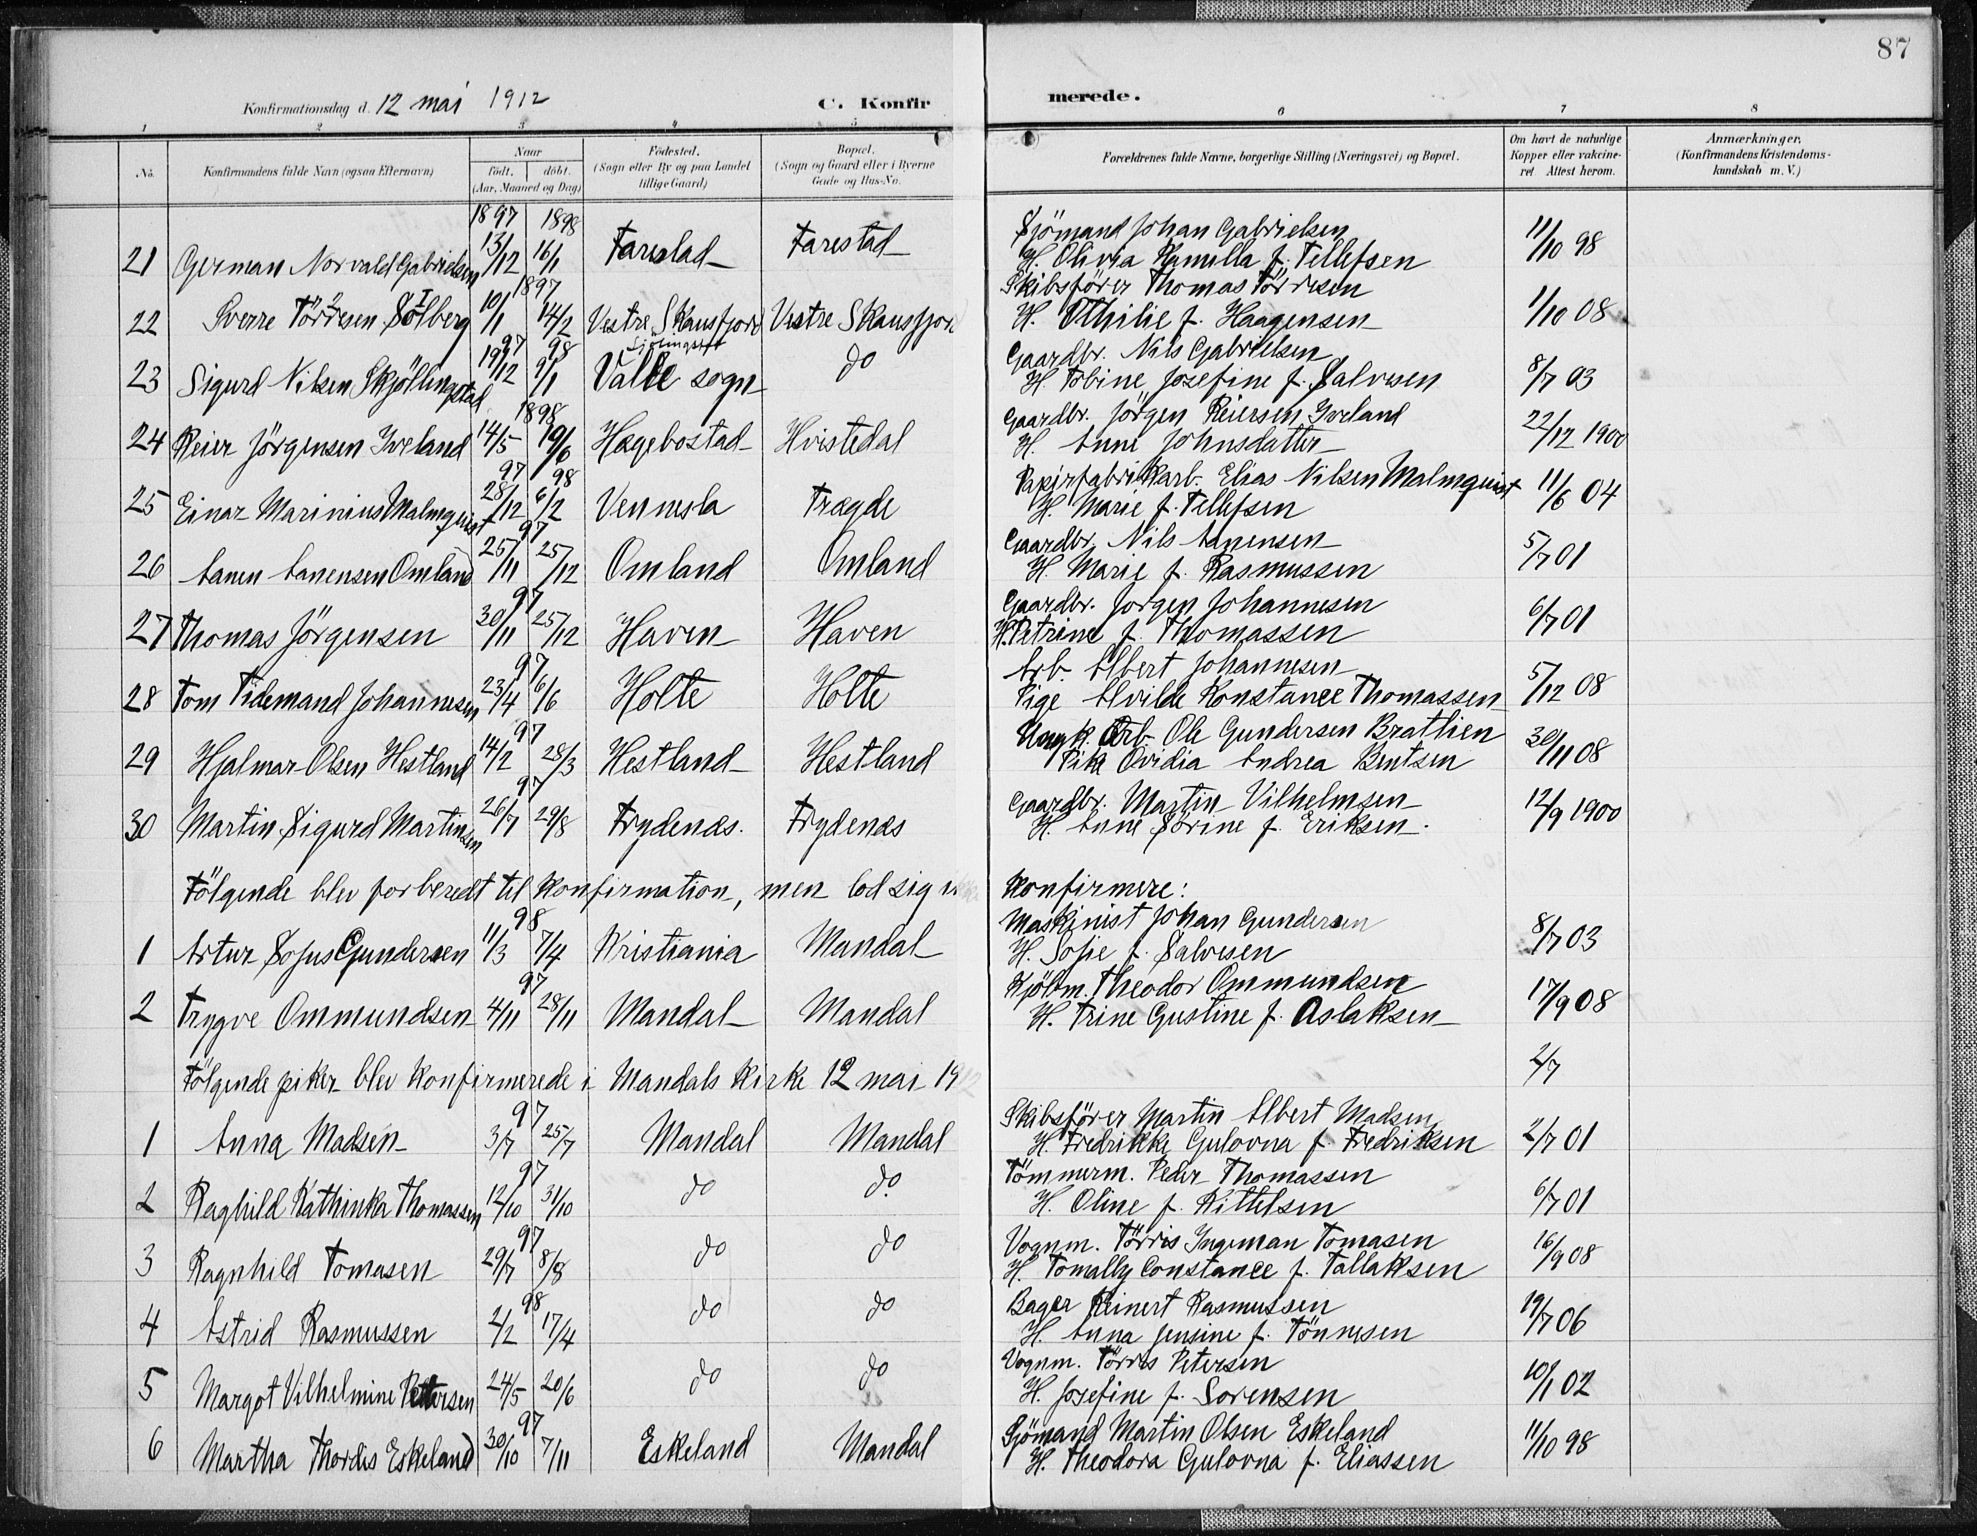 87
Konfirmationsdag d. 12 mai 1912
C. Konfirmerede.
1 2 3 4 5 6 7 8
No.
Konfirmandens fulde Navn (ogsaa Efternavn)
Naar
födt. döbt.
(Aar, Maaned og Dag)
Födested.
(Sogn eller By og paa Landet
tillige Gaard)
Bopæl.
(Sogn og Gaard eller i Byerne
Gade og Hus-No.
Forældrenes fulde Navne, borgerlige Stilling (Næringsvei) og Bopæl.
Om havt de naturlige
Kopper eller vakcine-
ret Attest herom.
Anmærkninger.
(Konfirmandens Kristendoms-
kundskab m. V.)
1897 1898
21 German Norvald Gabrielsen 13/12 16/1 Farestad Farestad Sjömand Johan Gabrielsen 11/10 98
H. Olivia Kamilla f. Tellefsen
1897
22 Sverre Törresen Sölberg 10/1 14/2 Vestre Skausfjord Vestre Skausfjor Skibsförer Thomas Törresen 1/10 08
H. Othilie f. Haagensen
97 98
23 Sigurd Nilsen Skjöllingstad 19/12 9/1 Valle sogn do Gaardbr. Nils Gabrielsen 8/7 03
H Tobine Josefine f. Salvesen
1898
24 Reier Jörgensen Iveland 14/5 19/6 Hægebostad Hvistedal Gaardbr. Jörgen Reiersen Iveland 22/12 1900
H. Anne Johnsdatter
97 98
25 Einar Marinius Malmquist 28/12 6/2 Vennesla Trægde Papirfabrikarb. Elias Nilsen Malmquist 11/6 04
H. Marie f. Tellefsen
97
26 Aanen Aanensen Omland 25/11 25/12 Omland Omland Gaardbr. Nils Aanensen 5/7 01
H. Marie f. Rasmussen
97
27 Thomas Jörgensen 30/11 25/12 Haven Haven Gaardbr. Jorgen Johannesen 6/7 01
H. Petrine f. Thomassen
97
28 Tom Tidemand Johannesen 23/4 6/6 Holte Holte Arb. Albert Johannesen 5/12 08
Pige Alvilde Konstance Thomassen
97
29 Hjalmar Olsen Hestland 14/2 28/3 Hestland Hestland Ungk. Arb. Ole Gundersen Brathien 30/11 08
Pike Ovidia Andrea Bentsen
97
30 Martin Sigurd Martinsen 26/7 29/8 Frydenæs. Frydenæs Gaardbr. Martin Vilhelmsen 12/9 1900
H. Anne Sörine f. Eriksen.
Følgende blev forberedt til konfirmation, men lod sig konfirmere:
98
1 Artur Sofus Gundersen 11/3 7/4 Kristiania Mandal Maskinist Johan Gundersen 8/7 03
H. Sofie f. Salvesen
97
2 Trygve Ommundsen 4/11 28/11 Mandal Mandal Theodor Ommundsen 17/9 08
H. Trine Gustine f. Aslaksen
Følgende piker blev konfirmerede i Mandals Kirke 12 mai 19 2/7
97
1 Anna Madsen 3/7 25/7 Mandal Mandal Skibsförer Martin Albert Madsen 2/7 01
H. Fredrikke Gulovna f Fredriksen
97
2 Raghild Kathinka Thomassen 12/10 31/10 do do Tömmerm. Peder Thomassen 6/7 01
H. Oline f. Kittelsen
97
3 Ragnhild Tomasen 29/7 8/8 do do Vognm. Törris Ingeman Tomasen 16/9 08
H. Tomally Constance f. Tallaksen
98
4 Astrid Rasmussen 2/2 17/4 do do Bager Reinert Rasmussen 19/7 06
H. Anna Jensine f. Tönnesen
5 Margot Vilhelmine Pettersen 24/5 20/6 do do Vognm. Törres Petersen 10/1 02
H. Josefine f. Sorensen
97
6 Martha Thordis Eskeland 30/10 7/11 Eskeland Mandal Sjömand Martin Olsen Eskeland 11/10 98
H. Theodora Gulovna f. Eliassen